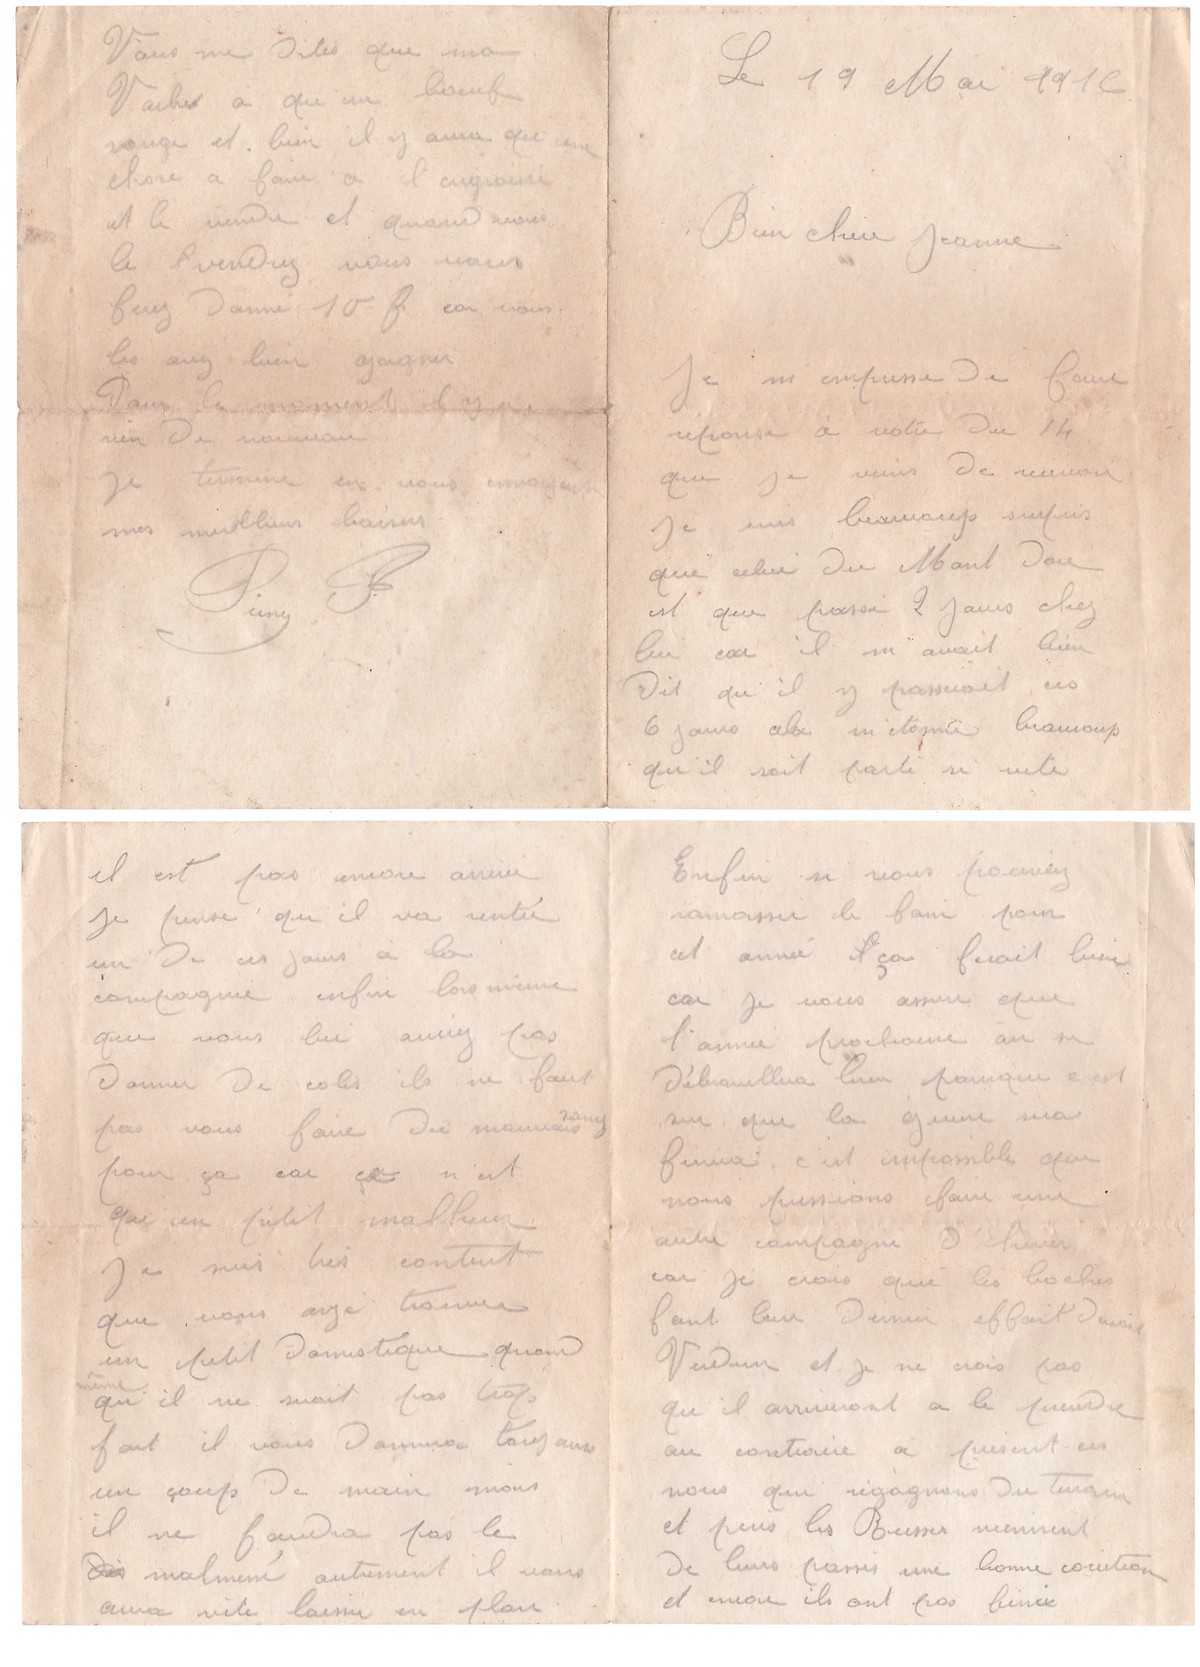 Le 19 Mai 1916
Bien chère Jeanne
Je m'empresse de faire
réponse à votre du 14
que je viens de recevoir
Je suis beaucoup surpris
que celui du Mont Dore
est que passé 2 jours chez
lui car il m'avait bien
dit qu'il y passerait ces
6 jours cela m'étonne beaucoup
qu'il soit parti si vite
il est pas encore arrivé
je pense qu'il va rentré
un de ces jours à la
compagnie enfin lors même
que vous lui auriez pas
donner de colis ils ne faut
pas vous faire du mauvais sang
pour ça car ça n'est
qu'un petit malheur
Je suis très content
que vous ayez trouver
un petit domestique quand
même qu'il ne serait pas trop
fort il vous donnera toujours
un coup de main mais
il ne faudra pas le
malmené autrement il vous
aura vite laissé en plan
Enfin si vous pouviez
ramassé le foin pour
cet année ça ferait bien
car je vous assure que
l'année prochaine on se
débrouillera bien parceque c'est
sur que la guerre sera
finira c'est impossible que
nous puissions faire une
autre campagne d'hiver
car je crois que les boches
font leur dernier effort devant
Verdun et je ne crois pas
qu'il arriveront a le prendre
au contraire à présent ces
nous qui régagnons du terrain
et puis les Russes viennent
de leurs passés une bonne correction
et encore ils ont pas finie
Vous me dites que ma
Vache a qu'un boeuf
rouge et bien il y aura qu'une
chose a faire a l'engraissé
et le vendre et quand vous
le vendrez vous vous
ferez donné 10 f car vous
les avez bien gagner
Pour le moment il y a
rien de nouveau
Je termine en vous envoyant
mes meilleurs baisers